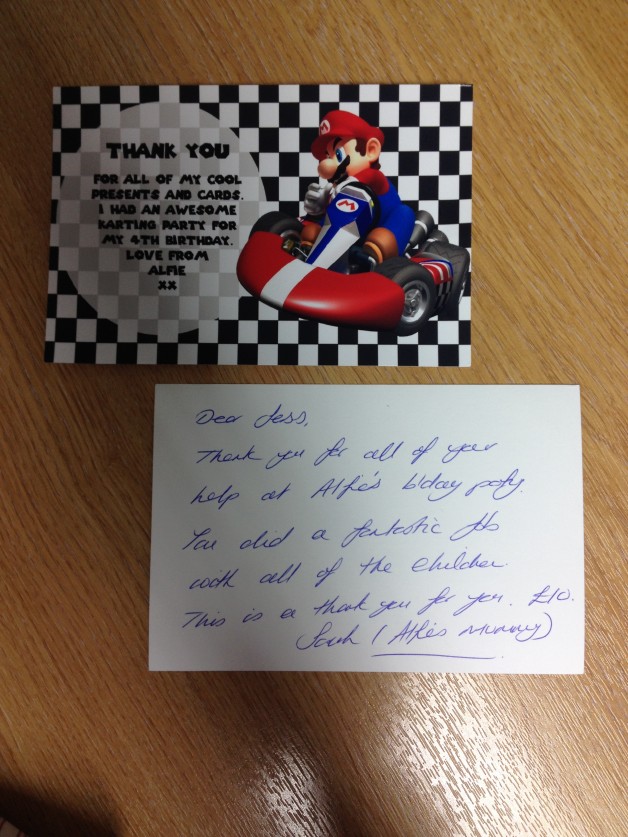 THANK YOU
FOR ALL OF MY COOL
PRESENTS AND CARDS.
I HAD AN AWESOME
KARTING PARTY FOR
MY 4TH BIRTHDAY.
LOVE FROM
ALFIE
XX
Dear Jess,
Thank you for all of your
help at Alfie's b'day party.
You did a fantastic job
with all of the children.
This is a thank you for you. £10.
Sarah (Alfie's mummy)